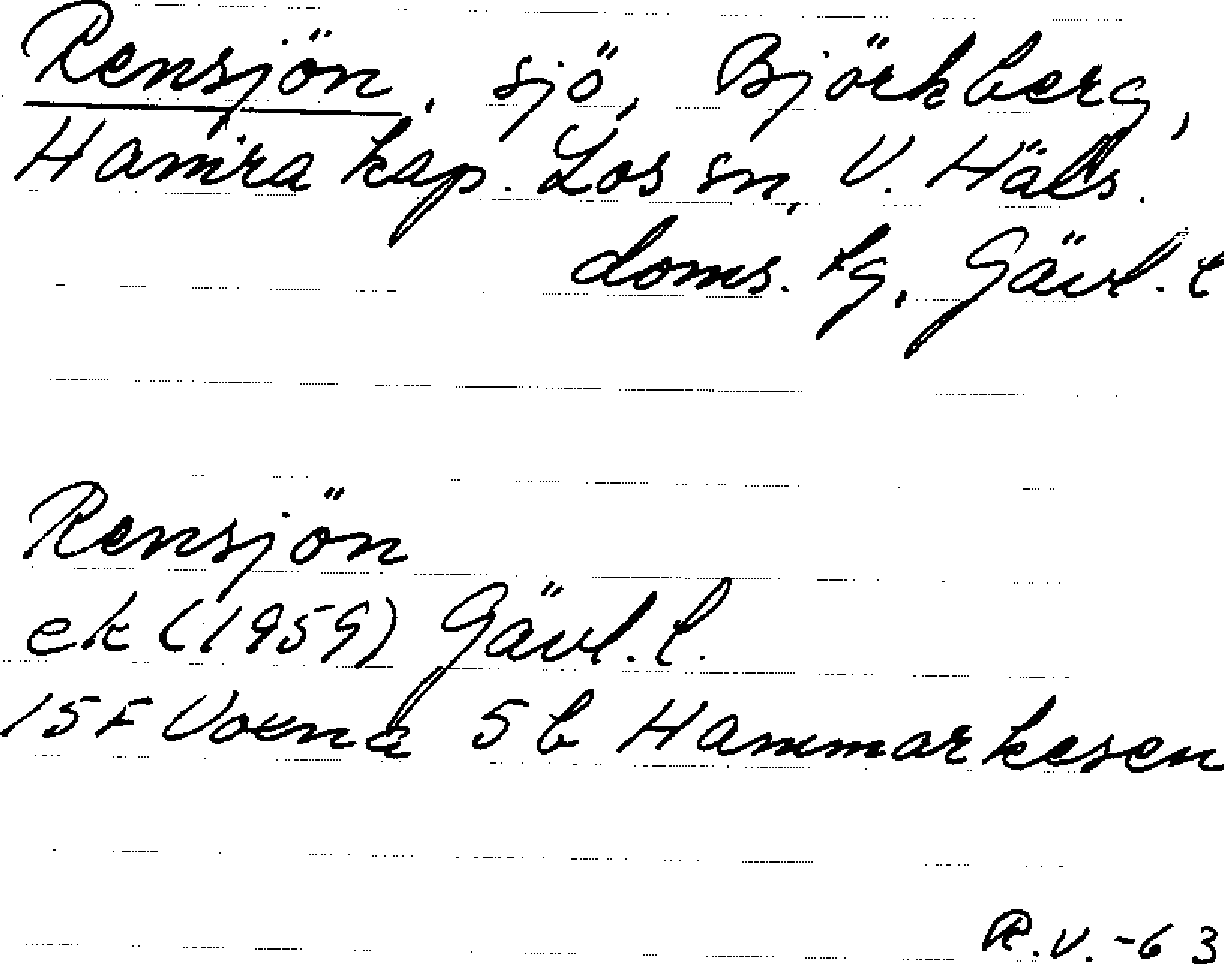 Rensjön, sjö, Björkberg,
Hamra kap. Los sn, V. Häls.
doms. lg, Gävl. l
Rensjön
ek (1959) Gävl. l.
15F Voxna 5b Hammarkesen
R.V. -63